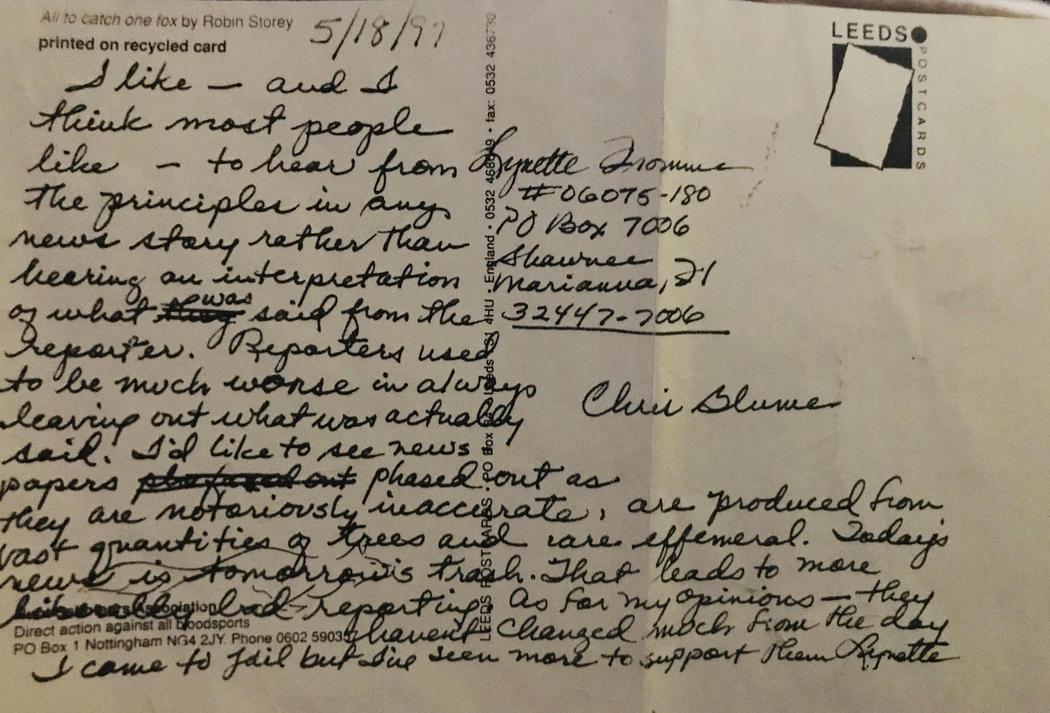 All to catch one fox by Robin Storey
printed on recycled card
5/18/97
I like – and I
think most people
like – to hear from
the principles in any
news story rather than
hearing an interpretation
of what was said from the
reporter. Reporters used
to be much worse in always
leaving out what was actually
said. I'd like to see news
papers phased out as
they are notoriously inaccurate, are produced from
vast quantities of trees and are effemeral. Today's
news is tomorrow's trash. That leads to more
bad reporting. As for my opinions – they
haven't changed much from the day
I came to jail but I've seen more to support them Lynette
Association
Direct action against all bloodsports
PO Box 1 Nottingham NG4 2JY. Phone 0602 59035
LEEDS POSTCARDS · PO Box Leeds 4HU · England · 0532 468649 · fax: 0532 436730
Lynette Fromme
#06075-180
PO Box 7006
Shawnee
Marianna, Fl
32447-7006
Chris Blume
LEEDS
POSTCARDS